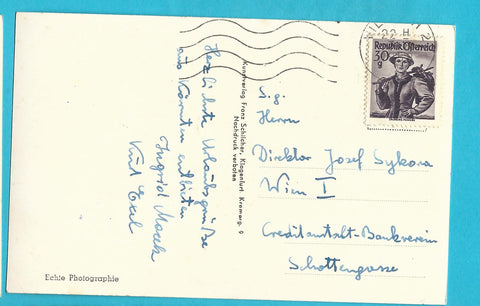 Herzlichste Urlaubsgrüße
aus Kärnten entbieten
Ingrid
Kunstverlag Franz Schilcher, Klagenfurt, Kramerg. 9
Nachdruck verboten
Echte Photographie
22. II
Republik Österreich
30
g
S.g.
Herrn
Direktor Josef Sykora
Wien I
Creditanstalt-Bankverein
Schottengasse